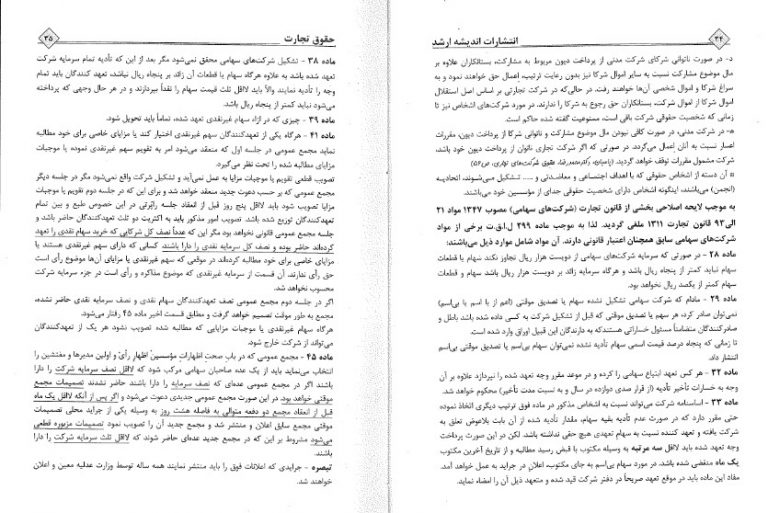 ۳۴
انتشارات اندیشه ارشد
د- در صورت ناتوانی شرکای شرکت مدنی از پرداخت دیون مربوط به مشارکت، بستانکاران علاوه بر
مال موضوع مشارکت نسبت به سایر اموال شرکا نیز بدون رعایت ترتیب، اعمال حق خواهند نمود و به
سراغ شرکا و اموال شخصی آن‌ها خواهند رفت. در حالی‌که در شرکت تجارتی بر اساس اصل استقلال
اموال شرکا از اموال شرکت، بستانکاران حق رجوع به شرکا را ندارند. در مورد شرکت‌های اشخاص نیز تا
زمانی که شخصیت حقوقی شرکت باقی است، ممنوعیت گفته شده حاکم است.
ه- در شرکت مدنی، در صورت کافی نبودن مال موضوع مشارکت و ناتوانی شرکا از پرداخت دیون، مقررات
اعسار نسبت به آنان اعمال می‌گردد. در صورتی که اگر شرکت تجاری ناتوان از پرداخت دیون خود باشد،
شرکت مشمول مقررات توقف خواهد گردید. (پاسبان، دکتر محمدرضا، حقوق شرکت‌های تجاری، ص۵۶)
¤ آن دسته از اشخاص حقوقی که با اهداف اجتماعی و معاضدتی و ..... تشکیل می‌شوند، اتحادیه
(انجمن) می‌باشند، اینگونه اشخاص دارای شخصیت حقوقی جدای از مؤسسین خود می‌باشند.
به موجب لایحه اصلاحی بخشی از قانون تجارت (شرکت‌های سهامی) مصوب ۱۳۴۷ مواد ۲۱
الی۹۳ قانون تجارت ۱۳۱۱ ملغی گردید. لذا به موجب ماده ۲۹۹ ل.ا.ق.ت برخی از مواد
شرکت‌های سهامی سابق همچنان اعتبار قانونی دارند. آن مواد شامل موارد ذیل می‌باشند:
ماده ۲۸ – در صورتی که سرمایه شرکت‌های سهامی از دویست هزار ریال تجاوز نکند سهام یا قطعات
سهام نباید کمتر از پنجاه ریال باشد و هرگاه سرمایه زائد بر دویست هزار ریال باشد سهام و قطعات
سهام کمتر از یکصد ریال نخواهد بود.
ماده ۲۹ – مادام که شرکت سهامی تشکیل نشده سهام یا تصدیق موقتی (اعم از با اسم یا بی‌اسم)
نمی‌توان صادر کرد، هر سهم یا تصدیق موقتی که قبل از تشکیل شرکت به کسی داده شده باشد باطل و
صادرکنندگان متضامناً مسئول خساراتی هستند که به دارندگان این قبیل اوراق وارد شده است.
تا زمانی که پنجاه درصد قیمت اسمی سهام تأدیه نشده نمی‌توان سهام بی‌اسم یا تصدیق موقتی بی‌اسم
انتشار داد.
ماده ۳۲ – هر کس تعهد ابتیاع سهامی را کرده و در موعد مقرر وجه تعهد شده را نپردازد علاوه بر آن
وجه به خسارات تأخیر تأدیه (از قرار صدی دوازده در سال و به نسبت مدت تأخیر) محکوم خواهد شد.
ماده ۳۳ – اساسنامه شرکت می‌تواند نسبت به اشخاص مذکور در ماده فوق ترتیب دیگری اتخاذ نموده
حتی مقرر دارد که در صورت عدم تأدیه بقیه سهام، مقدار تأدیه شده از آن بابت بلاعوض تعلق به
شرکت یافته و تعهد کننده نسبت به سهام تعهدی هیچ حقی نداشته باشد. لکن در این صورت پرداخت
وجه تعهد شده باید لااقل سه مرتبه به وسیله مکتوب با قبض رسید مطالبه و از تاریخ آخرین مکتوب
یک ماه منقضی شده باشد. در مورد سهام بی‌اسم به جای مکتوب، اعلان در جراید به عمل خواهد آمد.
مفاد این ماده باید در موقع تعهد صریحاً در دفتر شرکت قید شده و متعهد ذیل آن را امضاء نماید.
حقوق تجارت
۳۵
ماده ۳۸ – تشکیل شرکت‌های سهامی محقق نمی‌شود مگر بعد از این که تأدیه تمام سرمایه شرکت
تعهد شده باشد به علاوه هرگاه سهام یا قطعات آن زائد بر پنجاه ریال نباشد، تعهد کنندگان باید تمام
وجه را تأدیه نمایند والاّ باید لااقل ثلث قیمت سهام را نقداً بپردازند و در هر حال وجهی که پرداخته
می‌شود نباید کمتر از پنجاه ریال باشد.
ماده ۳۹ – چیزی که در ازاء سهام غیرنقدی تعهد شده، تماماً باید تحویل شود.
ماده ۴۱ – هرگاه یکی از تعهدکنندگان سهم غیرنقدی اختیار کند یا مزایای خاصی برای خود مطالبه
نماید مجمع عمومی در جلسه اول که منعقد می‌شود امر به تقویم سهم غیرنقدی نموده یا موجبات
مزایای مطالبه شده را تحت نظر می‌گیرد.
تصویب قطعی تقویم یا موجبات مزایا به عمل نمی‌آید و تشکیل شرکت واقع نمی‌شود مگر در جلسه دیگر
مجمع عمومی که بر حسب دعوت جدید منعقد خواهد شد و برای این که در جلسه دوم تقویم یا موجبات
مزایا تصویب شود باید لااقل پنج روز قبل از انعقاد جلسه راپرتی در این خصوص طبع و بین تمام
تعهدکنندگان توزیع شده باشد. تصویب امور مذکور باید به اکثریت دو ثلث تعهدکنندگان حاضر باشد و
مجمع عمومی قانونی نخواهد بود مگر این که عدداً نصف کل شرکایی که خرید سهام نقدی را تعهد
کرده‌اند حاضر بوده و نصف کل سرمایه نقدی را دارا باشند. کسانی که دارای سهم غیرنقدی هستند یا
مزایای خاصی برای خود مطالبه کرده‌اند در موقعی که سهم غیرنقدی یا مزایای آن‌ها موضوع رأی است
حق رأی ندارند. آن قسمت از سرمایه غیرنقدی که موضوع مذاکره و رأی است در جزء سرمایه شرکت
محسوب نخواهد شد.
اگر در جلسه دوم مجمع عمومی نصف تعهدکنندگان سهام نقدی و نصف سرمایه نقدی حاضر نشده،
مجمع به طور موقت تصمیم خواهد گرفت و مطابق قسمت اخیر ماده ۴۵ رفتار می‌شود.
هرگاه سهام غیرنقدی یا موجبات مزایایی که مطالبه شده تصویب نشود هر یک از تعهدکنندگان
می‌تواند از شرکت خارج شود.
ماده ۴۵ – مجمع عمومی که در باب صحت اظهارات مؤسسین اظهار رأی و اولین مدیرها و مفتشین را
انتخاب می‌نماید باید از یک عده صاحبان سهامی مرکب شود که لااقل نصف سرمایه شرکت را دارا
باشند اگر در مجمع عمومی عده‌ای که نصف سرمایه را دارا باشند حاضر نشدند تصمیمات مجمع
موقتی خواهد بود. در این صورت مجمع عمومی جدیدی دعوت می‌شود و اگر پس از آنکه لااقل یک ماه
قبل از انعقاد مجمع دو دفعه متوالی به فاصله هشت روز به وسیله یکی از جراید محلی تصمیمات
موقتی مجمع سابق اعلان و منتشر شد و مجمع جدید آن را تصویب نمود تصمیمات مزبوره قطعی
می‌شود مشروط بر این که در مجمع جدید عده‌ای حاضر شوند که لااقل ثلث سرمایه شرکت را دارا
باشند.
تبصره – جرایدی که اعلانات فوق را باید منتشر نمایند همه ساله توسط وزارت عدلیه معین و اعلان
خواهند شد.